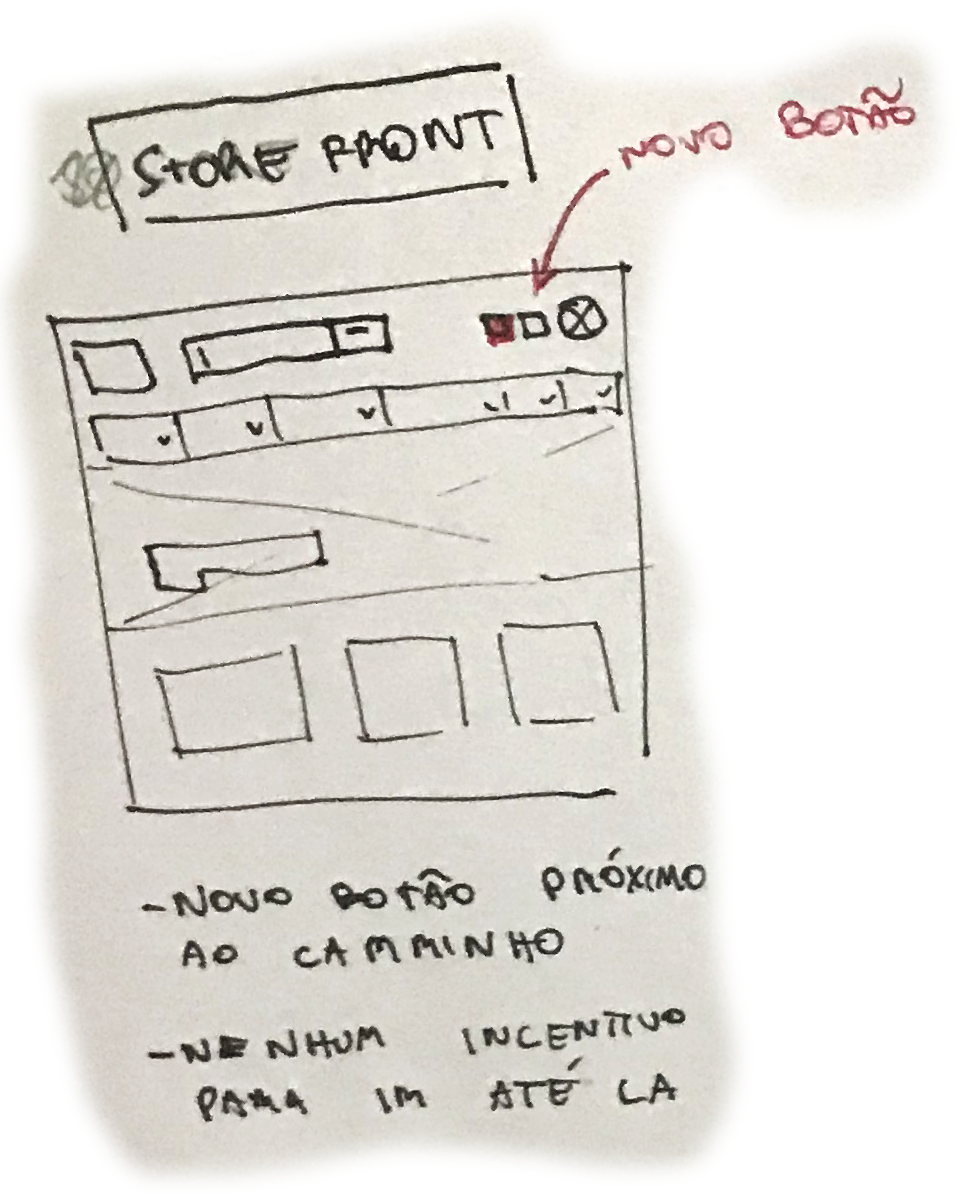 STORE FRONT
NOVO BOTÃO
-NOVO BOTÃO PRÓXIMO
AO CAMMINHO
-NENHUM INCENTIVO
PARA IR ATÉ LA